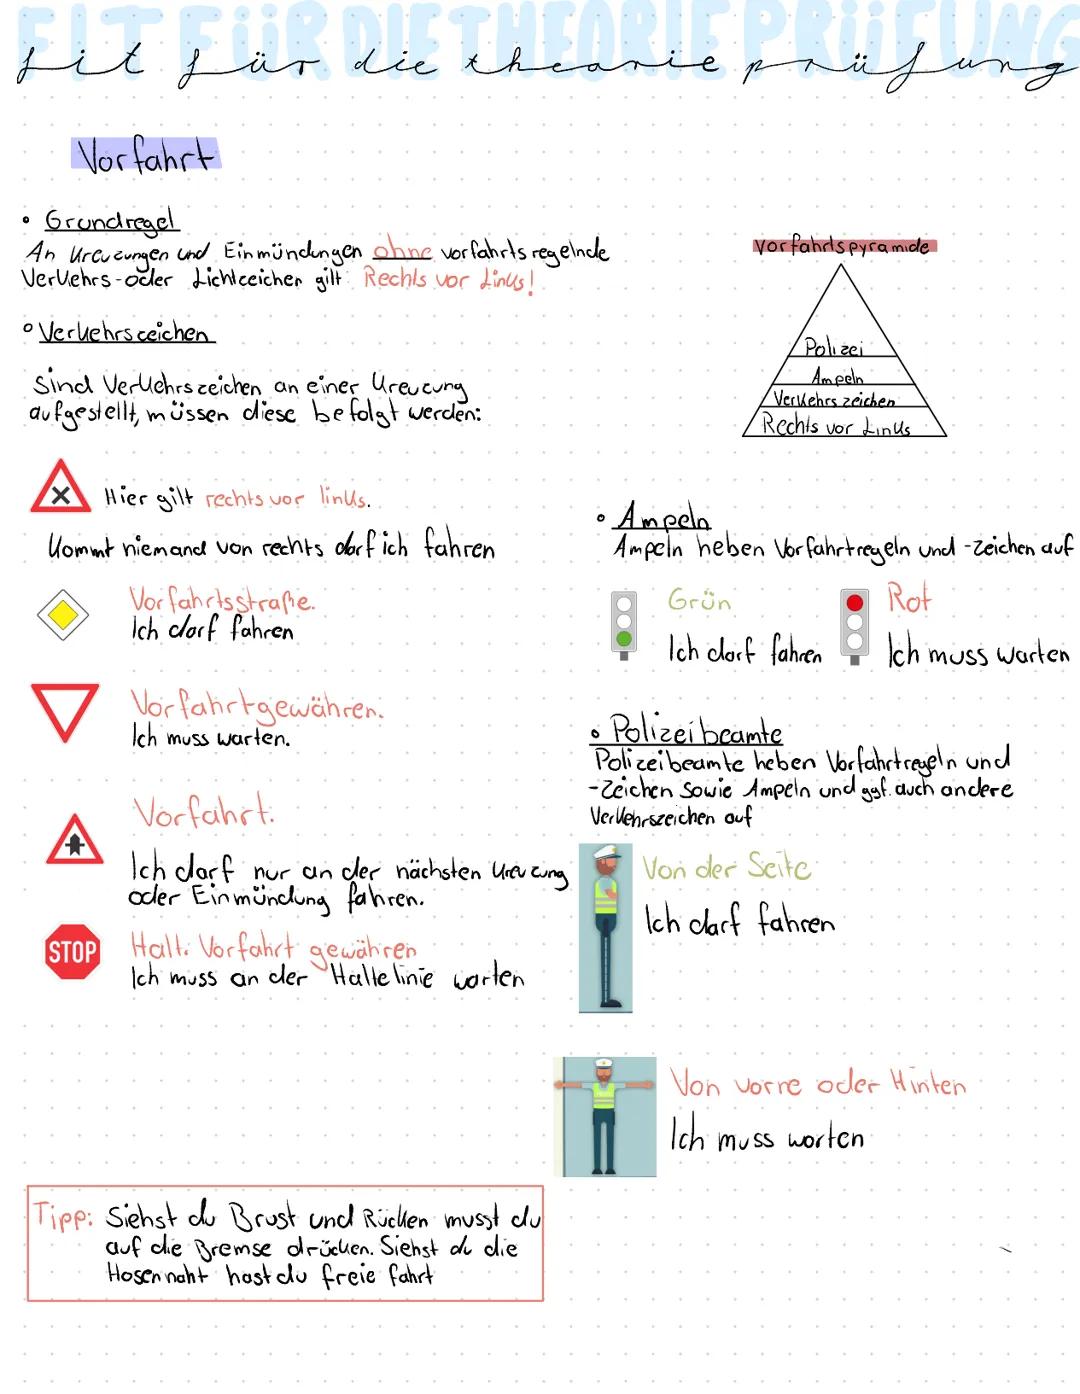 FIT FÜR DIE THEORIE PRÜFUNG
fit für die theorie prüfung
Vorfahrt
• Grundregel
An Kreuzungen und Einmündungen ohne vorfahrtsregelnde
Verkehrs-oder Lichtzeichen gilt Rechts vor Links!
• Verkehrszeichen
Sind Verkehrszeichen an einer Kreuzung
aufgestellt, müssen diese befolgt werden:
Hier gilt rechts vor links.
Kommt niemand von rechts darf ich fahren
Vorfahrtsstraße.
Ich darf fahren
Vorfahrtgewähren.
Ich muss warten.
Vorfahrt.
Ich darf nur an der nächsten Kreuzung
oder Einmündung fahren.
STOP
Halt. Vorfahrt gewähren
Ich muss an der Haltelinie warten
Vorfahrtspyramide
Polizei
Ampeln
Verkehrszeichen
Rechts vor Links
• Ampeln
Ampeln heben Vorfahrtregeln und -zeichen auf
Grün
Ich darf fahren
Rot
Ich muss warten
• Polizeibeamte
Polizeibeamte heben Vorfahrtregeln und
-zeichen sowie Ampeln und ggf. auch andere
Verkehrszeichen auf
Von der Seite
Ich darf fahren
Von vorne oder Hinten
Ich muss warten
Tipp: Siehst du Brust und Rücken musst du
auf die Bremse drücken. Siehst du die
Hosennaht hast du freie fahrt